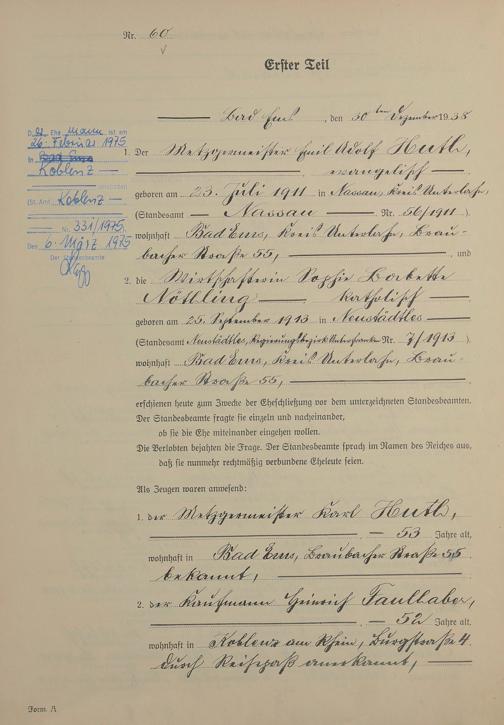 Nr. 60
Erster Teil
Bad Ems, den 30ten Dezember 1938
1. Der Metzgermeister Emil Adolf Huth,
evangelisch
geboren am 23. Juli 1911 in Nassau, Kreis Unterlahn,
(Standesamt Nassau Nr. 56/1911)
wohnhaft Bad Ems, Kreis Unterlahn, Brau-
bacher Straße 55, und
2. die Wirtschafterin Sophie Babette
Nöthling katholisch
geboren am 25. September 1913 in Neustädtles
(Standesamt Neustädtles, Regierungsbezirk Unterfranken Nr. 7/1913)
wohnhaft Bad Ems, Kreis Unterlahn, Brau-
bacher Straße 55,
erschienen heute zum Zwecke der Eheschließung vor dem unterzeichneten Standesbeamten.
Der Standesbeamte fragte sie einzeln und nacheinander,
ob sie die Ehe miteinander eingehen wollen.
Die Verlobten bejahten die Frage. Der Standesbeamte sprach im Namen des Reiches aus,
daß sie nunmehr rechtmäßig verbundene Eheleute seien.
Als Zeugen waren anwesend:
1. der Metzgermeister Karl Huth,
53 Jahre alt,
wohnhaft in Bad Ems, Braubacher Straße 55
bekannt,
2. der Kaufmann Heinrich Faullaber,
52 Jahre alt,
wohnhaft in Koblenz am Rhein, Burgstraße 4
durch Reisepaß anerkannt,
Form. A
Der Ehemann ist am
26. Februar 1975
in Bad Ems
Koblenz
verstorben
(St. Amt Koblenz
Nr. 331/1975)
Den 6. März 1975
Der Standesbeamte